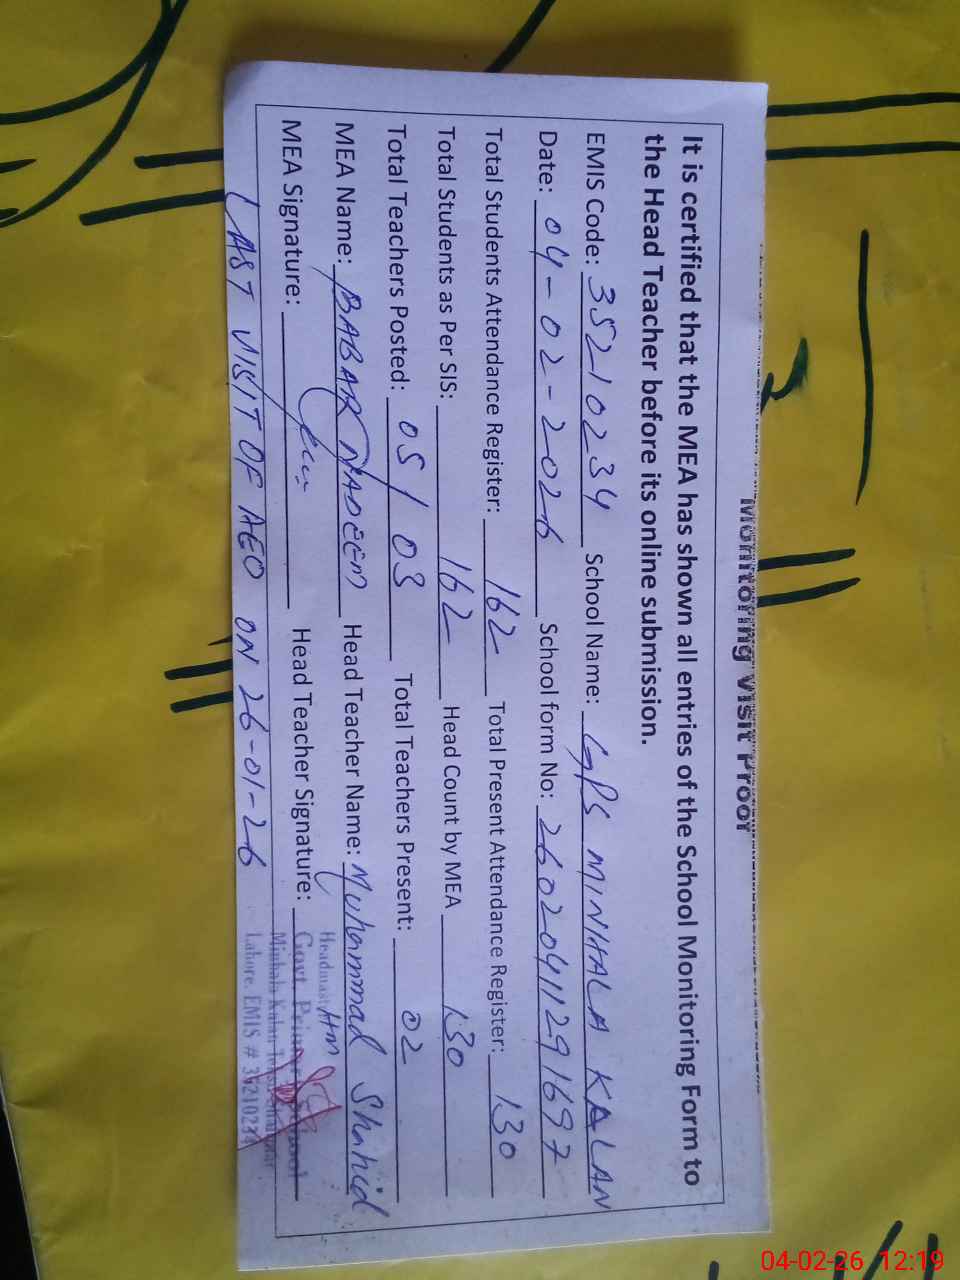 Monitoring Visit Proof
It is certified that the MEA has shown all entries of the School Monitoring Form to
the Head Teacher before its online submission.
EMIS Code: 35210234 School Name: GPS MINHALA KALAN
Date: 04-02-2026 School form No: 26020411291697
Total Students Attendance Register: 162 Total Present Attendance Register: 130
Total Students as Per SIS: 162 Head Count by MEA 130
Total Teachers Posted: 05/03 Total Teachers Present: 02
MEA Name: BABAR NADEEM Head Teacher Name: Muhammad Shahid
MEA Signature: Head Teacher Signature: HM
LAST VISIT OF AEO ON 26-01-26
Govt. Primary School
Minhala Kalan
Lahore. EMIS # 35210234
04-02-26 12:19